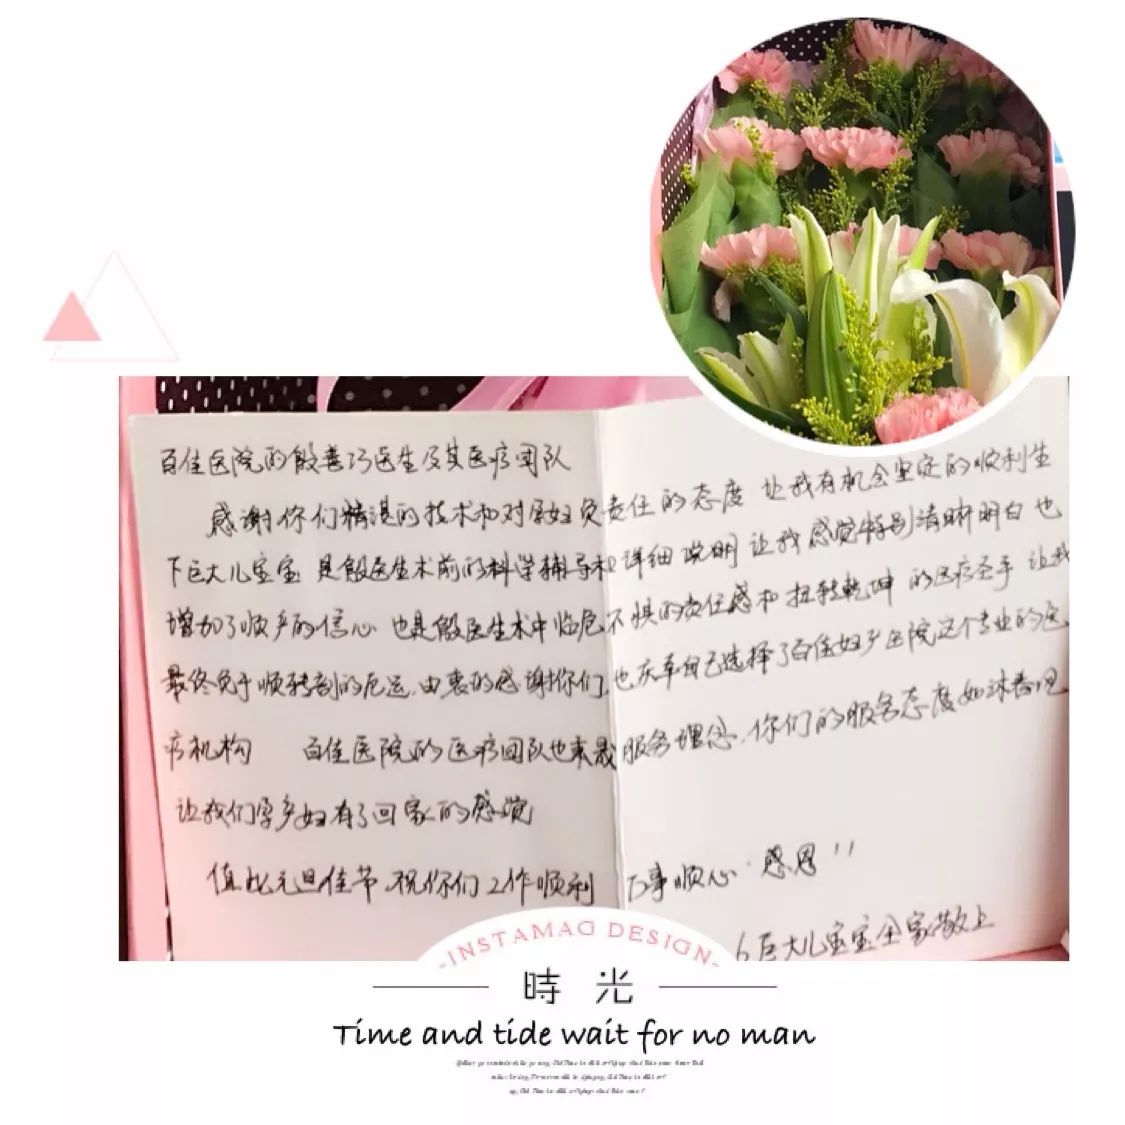 百佳医院的殷善巧医生及其医疗团队
感谢你们精湛的技术和对孕妇负责任的态度 让我有机会坚定的顺利生
下巨大儿宝宝 是殷医生术前的科学辅导和详细说明 让我感觉特别清晰明白 也
增加了顺产的信心 也是殷医生术中临危不惧的责任感和扭转乾坤的医疗圣手 让我
最终免于顺转剖的厄运.由衷的感谢你们,也庆幸自己选择了百佳妇产医院这个专业的医
疗机构 百佳医院的医疗团队也来最服务理念.你们的服务态度如沐春风
让我们孕产妇有了回家的感觉
值此元旦佳节.祝你们工作顺利 万事顺心·感恩!!
巨大儿宝宝全家敬上
-INSTAMAG DESIGN-
時光
Time and tide wait for no man